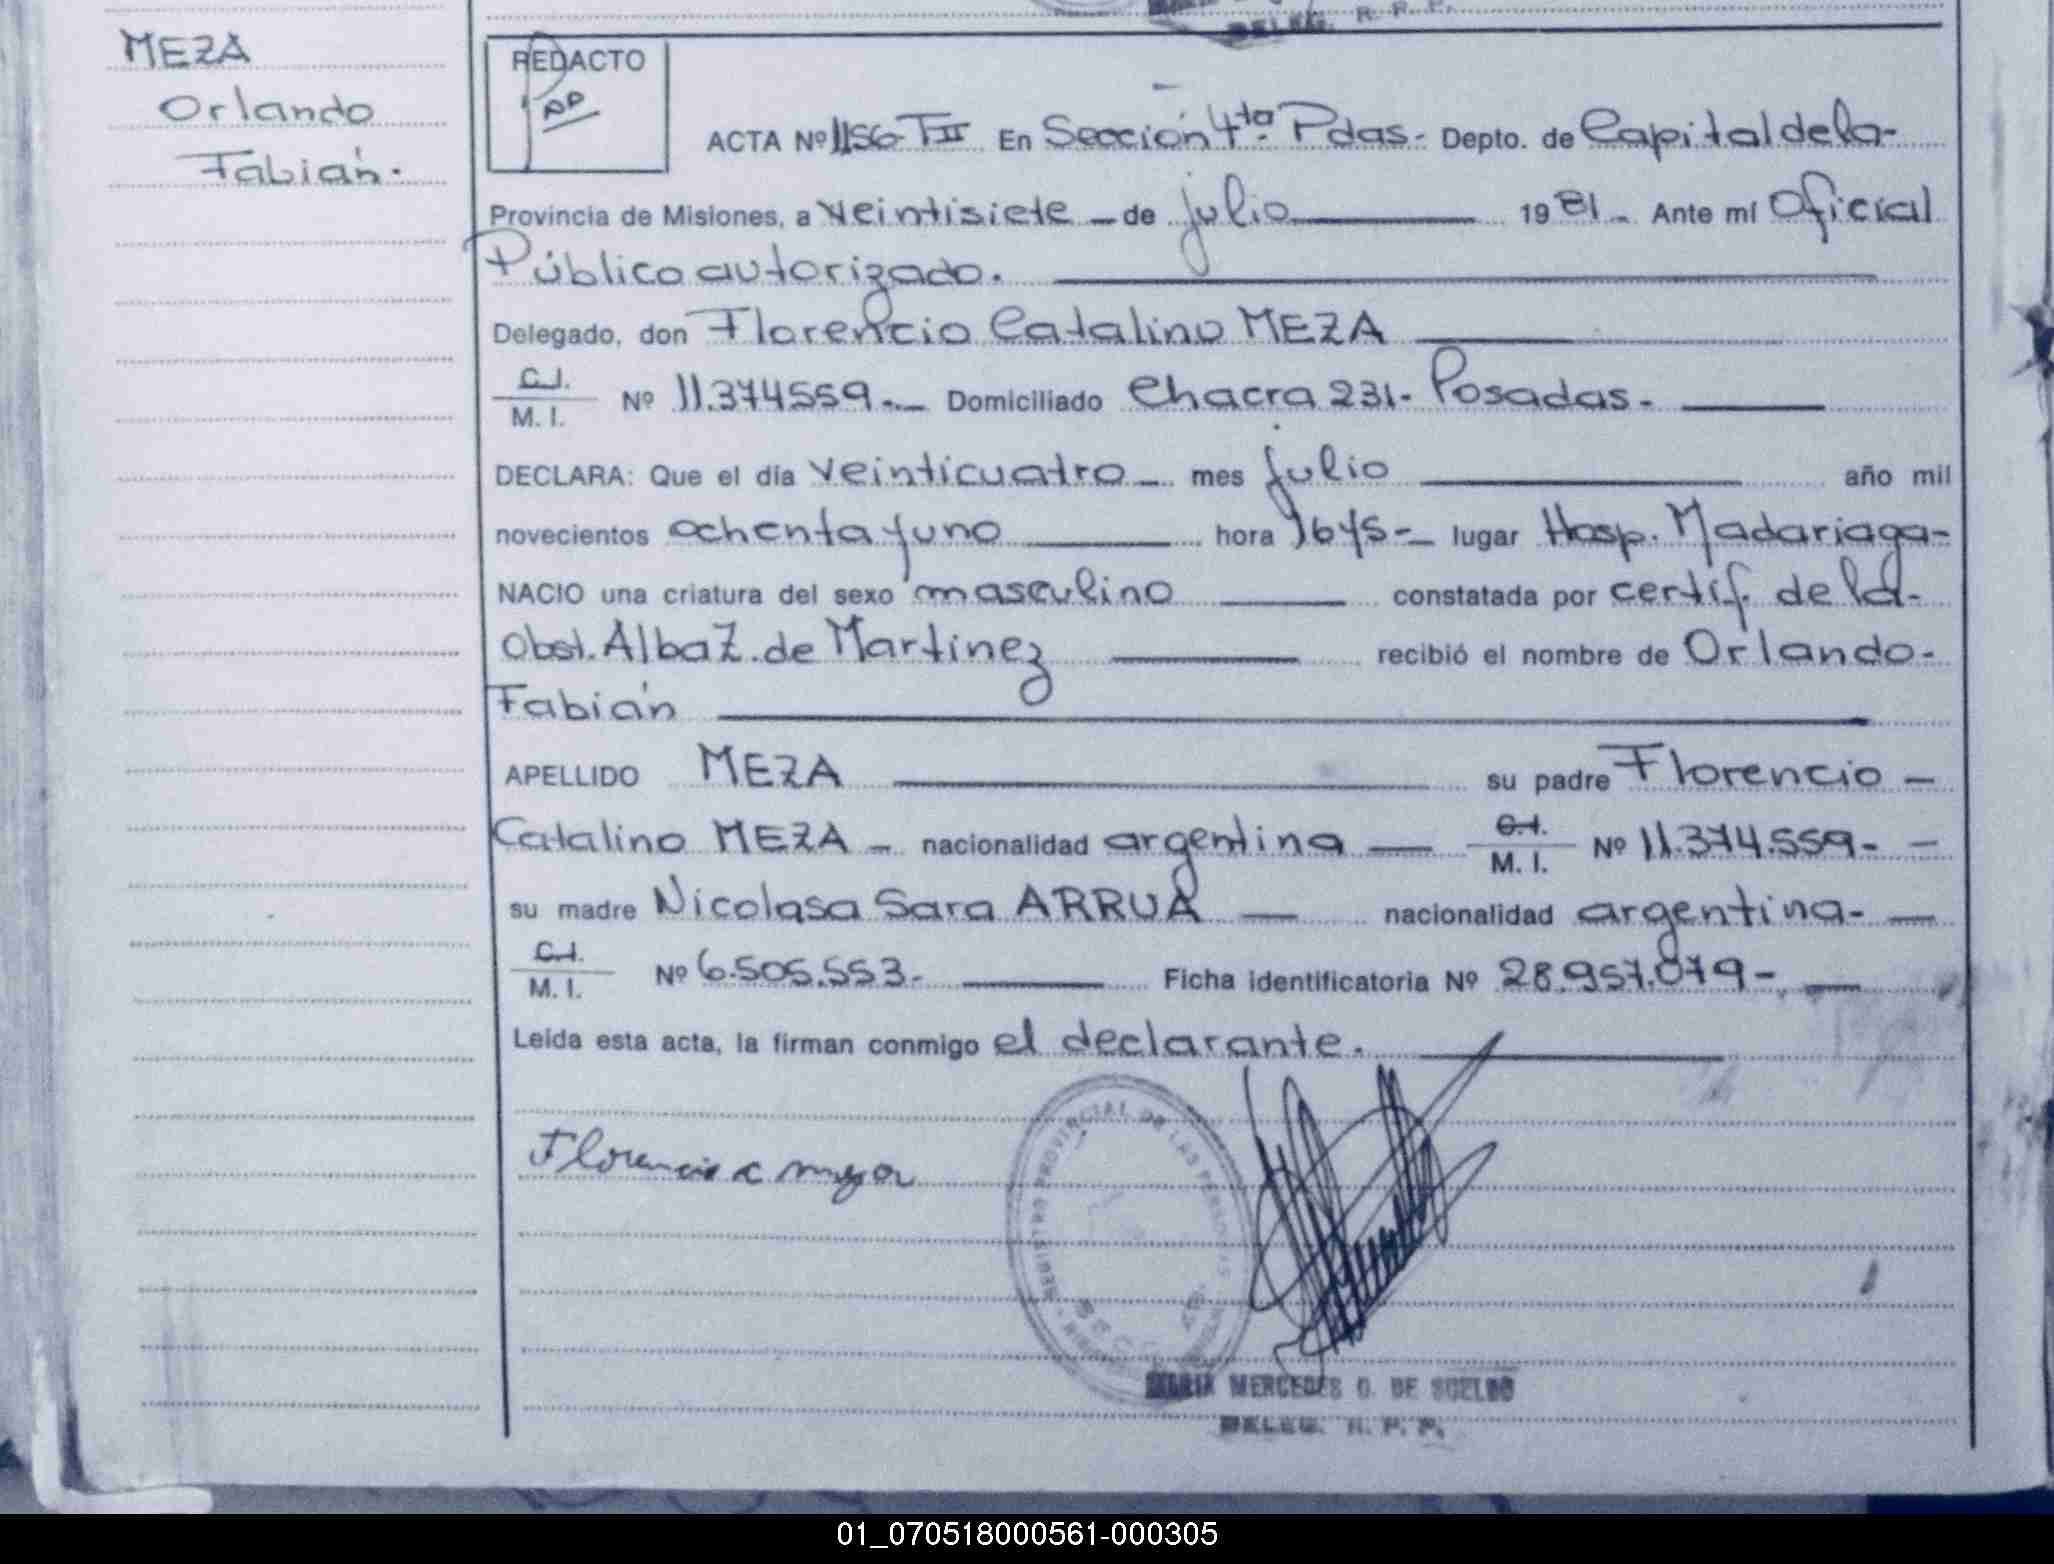 DELEG. R. R. P.
MEZA
Orlando
Fabián.
REDACTO
ACTA Nº 1156-TII En Sección 4ta Pdas.- Depto. de Capital de la-
Provincia de Misiones, a veintisiete - de julio 1981.- Ante mí Oficial
Público autorizado.
Delegado, don Florencio Catalino MEZA
C.I.
M. I. Nº 11.374.559.- Domiciliado Chacra 231.- Posadas.-
DECLARA: Que el día veinticuatro - mes julio año mil
novecientos ochenta y uno hora 1645- lugar Hosp. Madariaga-
NACIO una criatura del sexo masculino constatada por certif. de la-
Obst. Alba Z. de Martinez recibió el nombre de Orlando-
Fabián
APELLIDO MEZA su padre Florencio -
Catalino MEZA - nacionalidad argentina C.I.
M. I. Nº 11.374.559.- -
su madre Nicolasa Sara ARRUA nacionalidad argentina.-
C.I.
M. I. Nº 6.505.553.- Ficha identificatoria Nº 28.957.079-
Leída esta acta, la firman conmigo el declarante.
REGISTRO PROVINCIAL DE LAS PERSONAS
MARIA MERCEDES O. DE SUELDO
DELEG. R. P. P.
01_070518000561-000305